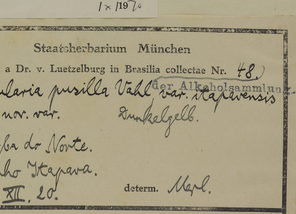 1/x/1970
Staatsherbarium München
a Dr. v. Luetzelburg in Brasilia collectae Nr. 48.)
der Alkoholsammlung
ularia pusilla Vahl var. itapavensis
nov. var. Dunkelgelb.
ba do Norte.
ho Itapava.
XII. 20. determ. Merl.